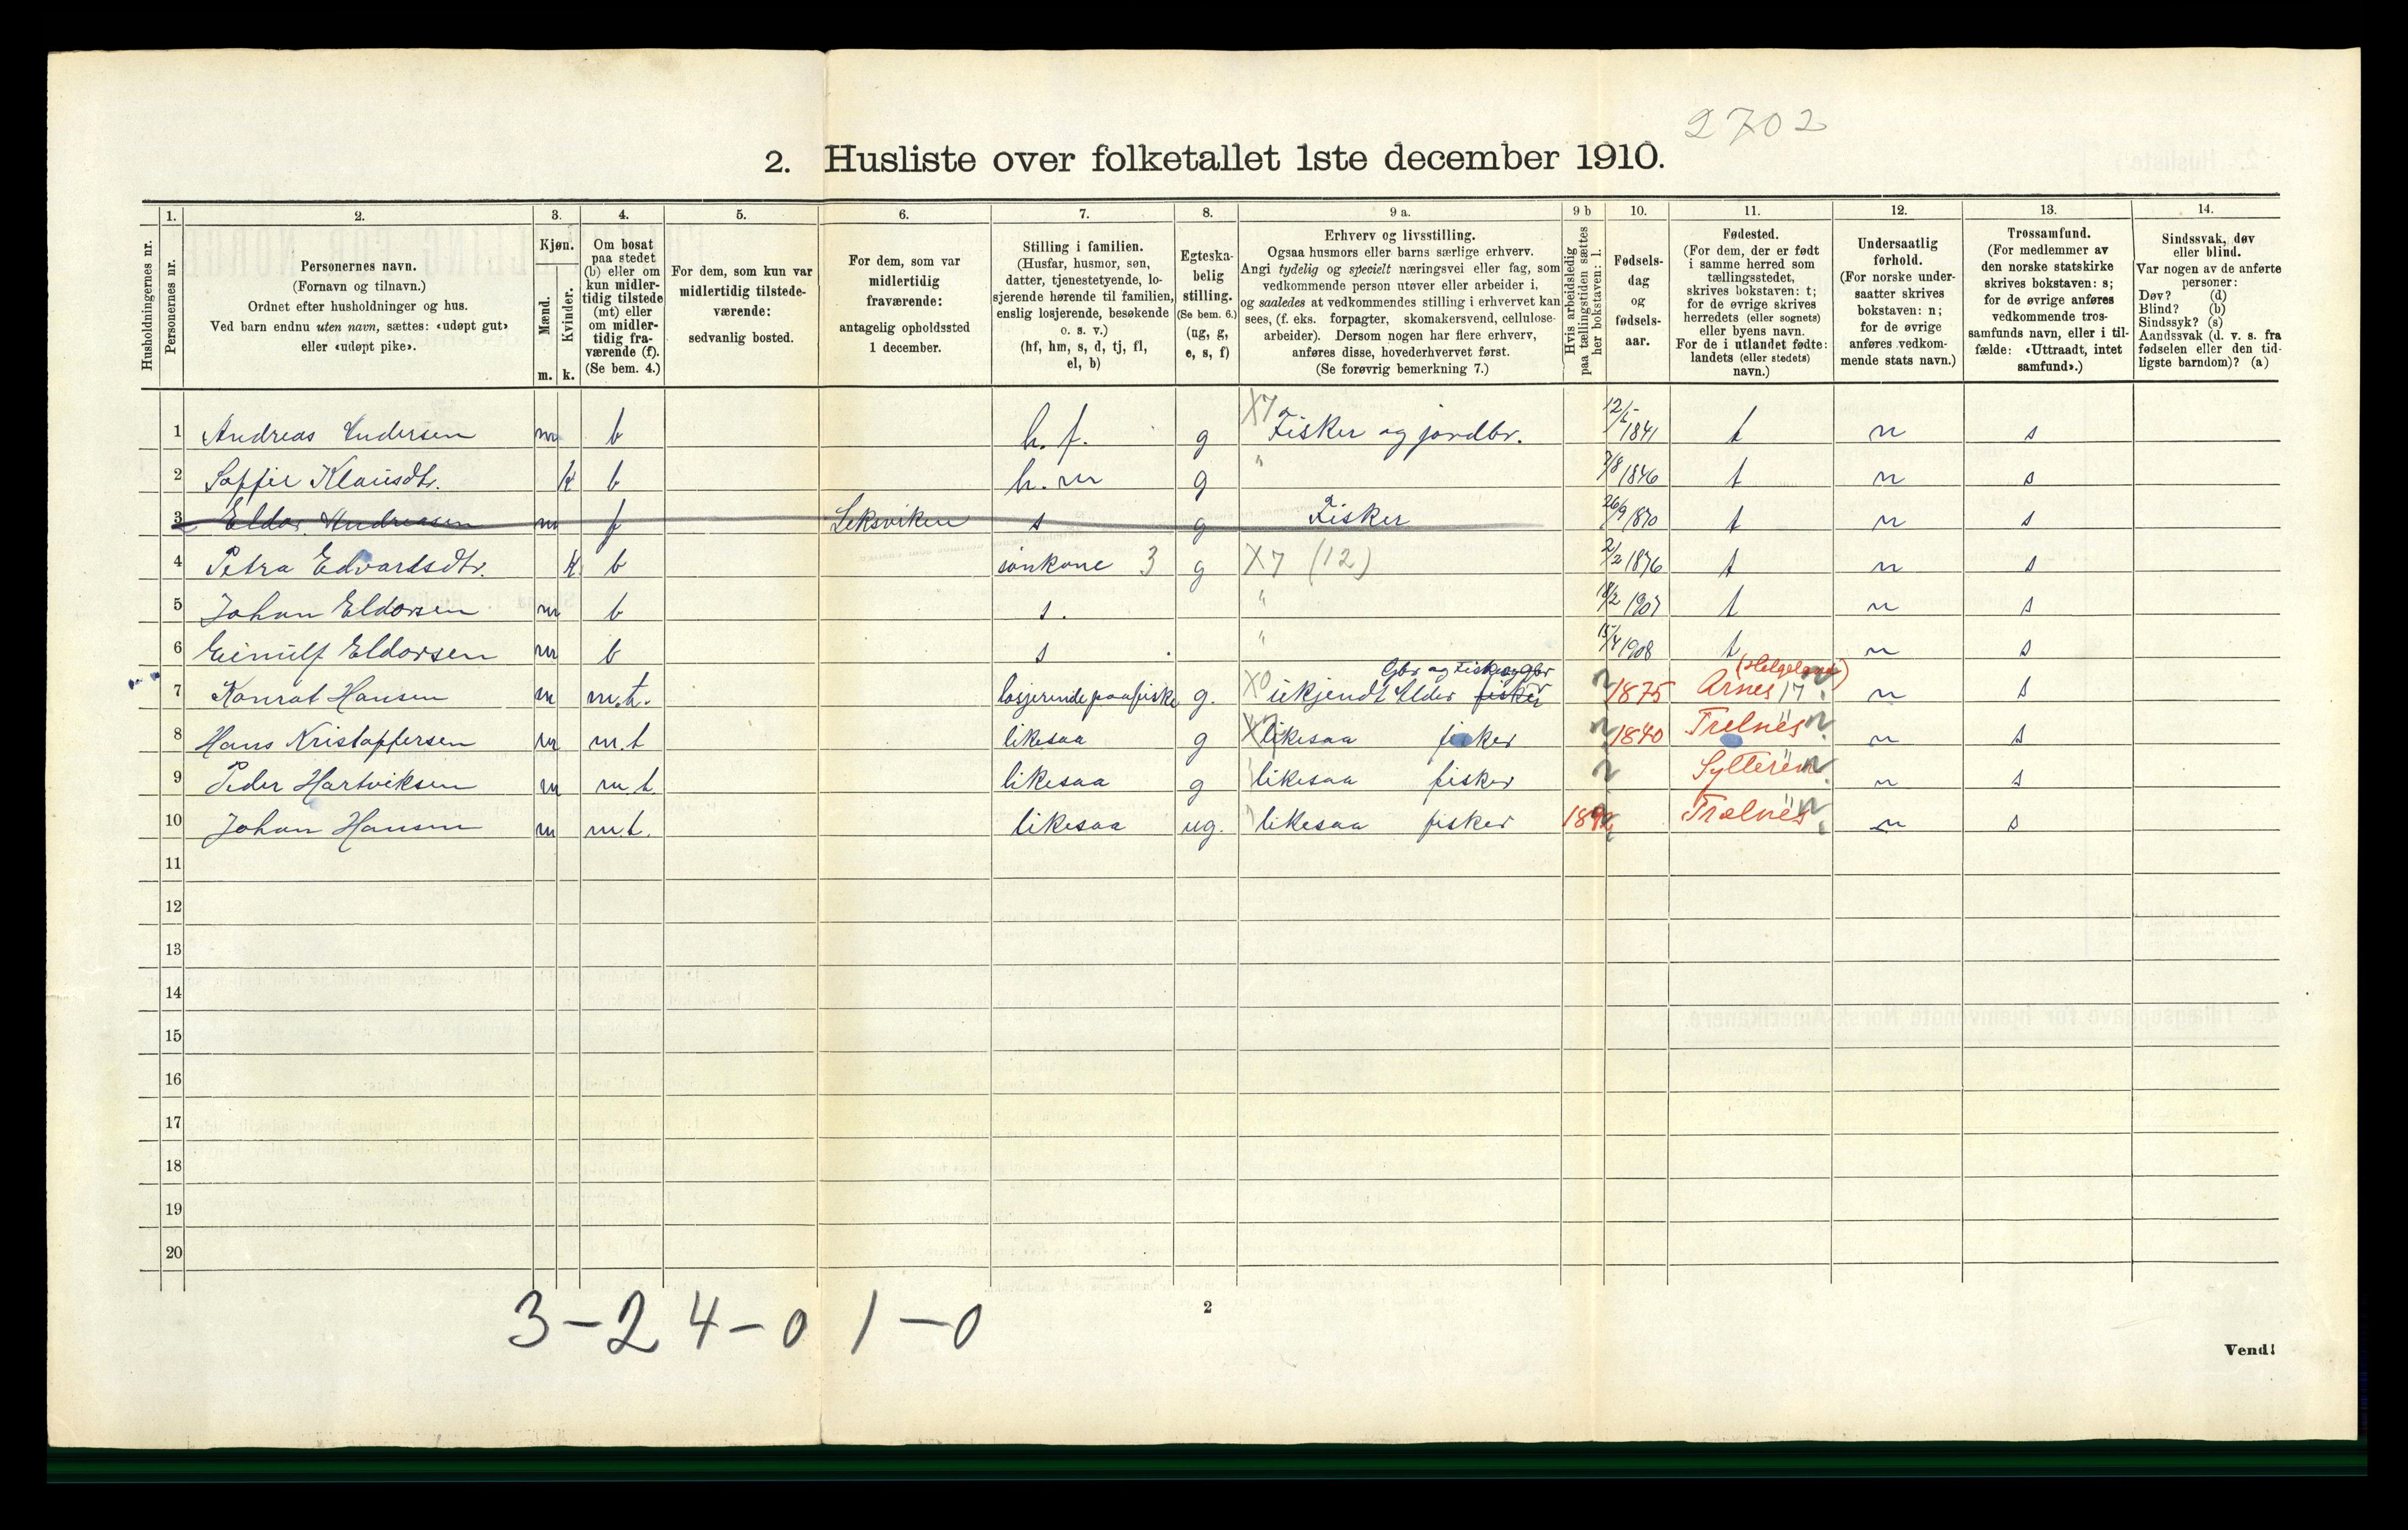 2702
2. Husliste over folketallet 1ste december 1910.
1. 2. 3. 4. 5. 6. 7. 8. 9 a. 9 b 10. 11. 12. 13. 14.
Husholdningernes nr.
Personernes nr.
Personernes navn.
(Fornavn og tilnavn.)
Ordnet efter husholdninger og hus.
Ved barn endnu uten navn, sættes: «udøpt gut»
eller «udøpt pike».
Kjøn.
Mænd.
Kvinder.
m. k.
Om bosat
paa stedet
(b) eller om
kun midler-
tidig tilstede
(mt) eller
om midler-
tidig fra-
værende (f).
(Se bem. 4.)
For dem, som kun var
midlertidig tilstede-
værende:
sedvanlig bosted.
For dem, som var
midlertidig
fraværende:
antagelig opholdssted
1 december.
Stilling i familien.
(Husfar, husmor, søn,
datter, tjenestetyende, lo-
sjerende hørende til familien,
enslig losjerende, besøkende
o. s. v.)
(hf, hm, s, d, tj, fl,
el, b)
Egteska-
belig
stilling.
(Se bem. 6.)
(ug, g,
e, s, f)
Erhverv og livsstilling.
Ogsaa husmors eller barns særlige erhverv.
Angi tydelig og specielt næringsvei eller fag, som
vedkommende person utøver eller arbeider i,
og saaledes at vedkommendes stilling i erhvervet kan
sees, (f. eks. forpagter, skomakersvend, cellulose-
arbeider). Dersom nogen har flere erhverv,
anføres disse, hovederhvervet først.
(Se forøvrig bemerkning 7.)
Hvis arbeidsledig
paa tællingstiden sættes
her bokstaven: l.
Fødsels-
dag
og
fødsels-
aar.
Fødested.
(For dem, der er født
i samme herred som
tællingsstedet,
skrives bokstaven: t;
for de øvrige skrives
herredets (eller sognets)
eller byens navn.
For de i utlandet fødte:
landets (eller stedets)
navn.)
Undersaatlig
forhold.
(For norske under-
saatter skrives
bokstaven: n;
for de øvrige
anføres vedkom-
mende stats navn.)
Trossamfund.
(For medlemmer av
den norske statskirke
skrives bokstaven: s;
for de øvrige anføres
vedkommende tros-
samfunds navn, eller i til-
fælde: «Uttraadt, intet
samfund».)
Sindssvak, døv
eller blind.
Var nogen av de anførte
personer:
Døv? (d)
Blind? (b)
Sindssyk? (s)
Aandssvak (d. v. s. fra
fødselen eller den tid-
ligste barndom)? (a)
1 Andreas Andersen m b h. f. g X7 Fisker og jordbr. 1841 t n s
2 Soffie Klausdtr. k b h. m g " 7/8 1846 t n s
3 Eldor Andreasen m f Leksviken s g Fisker 26/9 1870 t n s
4 Petra Edvardsdtr. k b sønkone 3 g X7 (12) 2/2 1876 t n s
5 Johan Eldorsen m b s. " 18/2 1907 t n s
6 Einulf Eldorsen m b s " 15/4 1908 t n s
Gbr og Fisker
(Helgeland)
7 Konrat Hansen m m.t. losjerende paa fiske g. X0 ukjendt Alder fisker 1875 Arnes 17 n s
8 Hans Kristoffersen m m.t likesaa g likesaa fisker ? 1840 Trelnes n s
9 Peder Hartviksen m m.t likesaa g likesaa fisker ? n s
10 Johan Hansen m m.t. likesaa ug. likesaa fisker 1892 Trælnes n s
11
12
13
14
15
16
17
18
19
20
3-2 4-0 1-0
2
Vend!